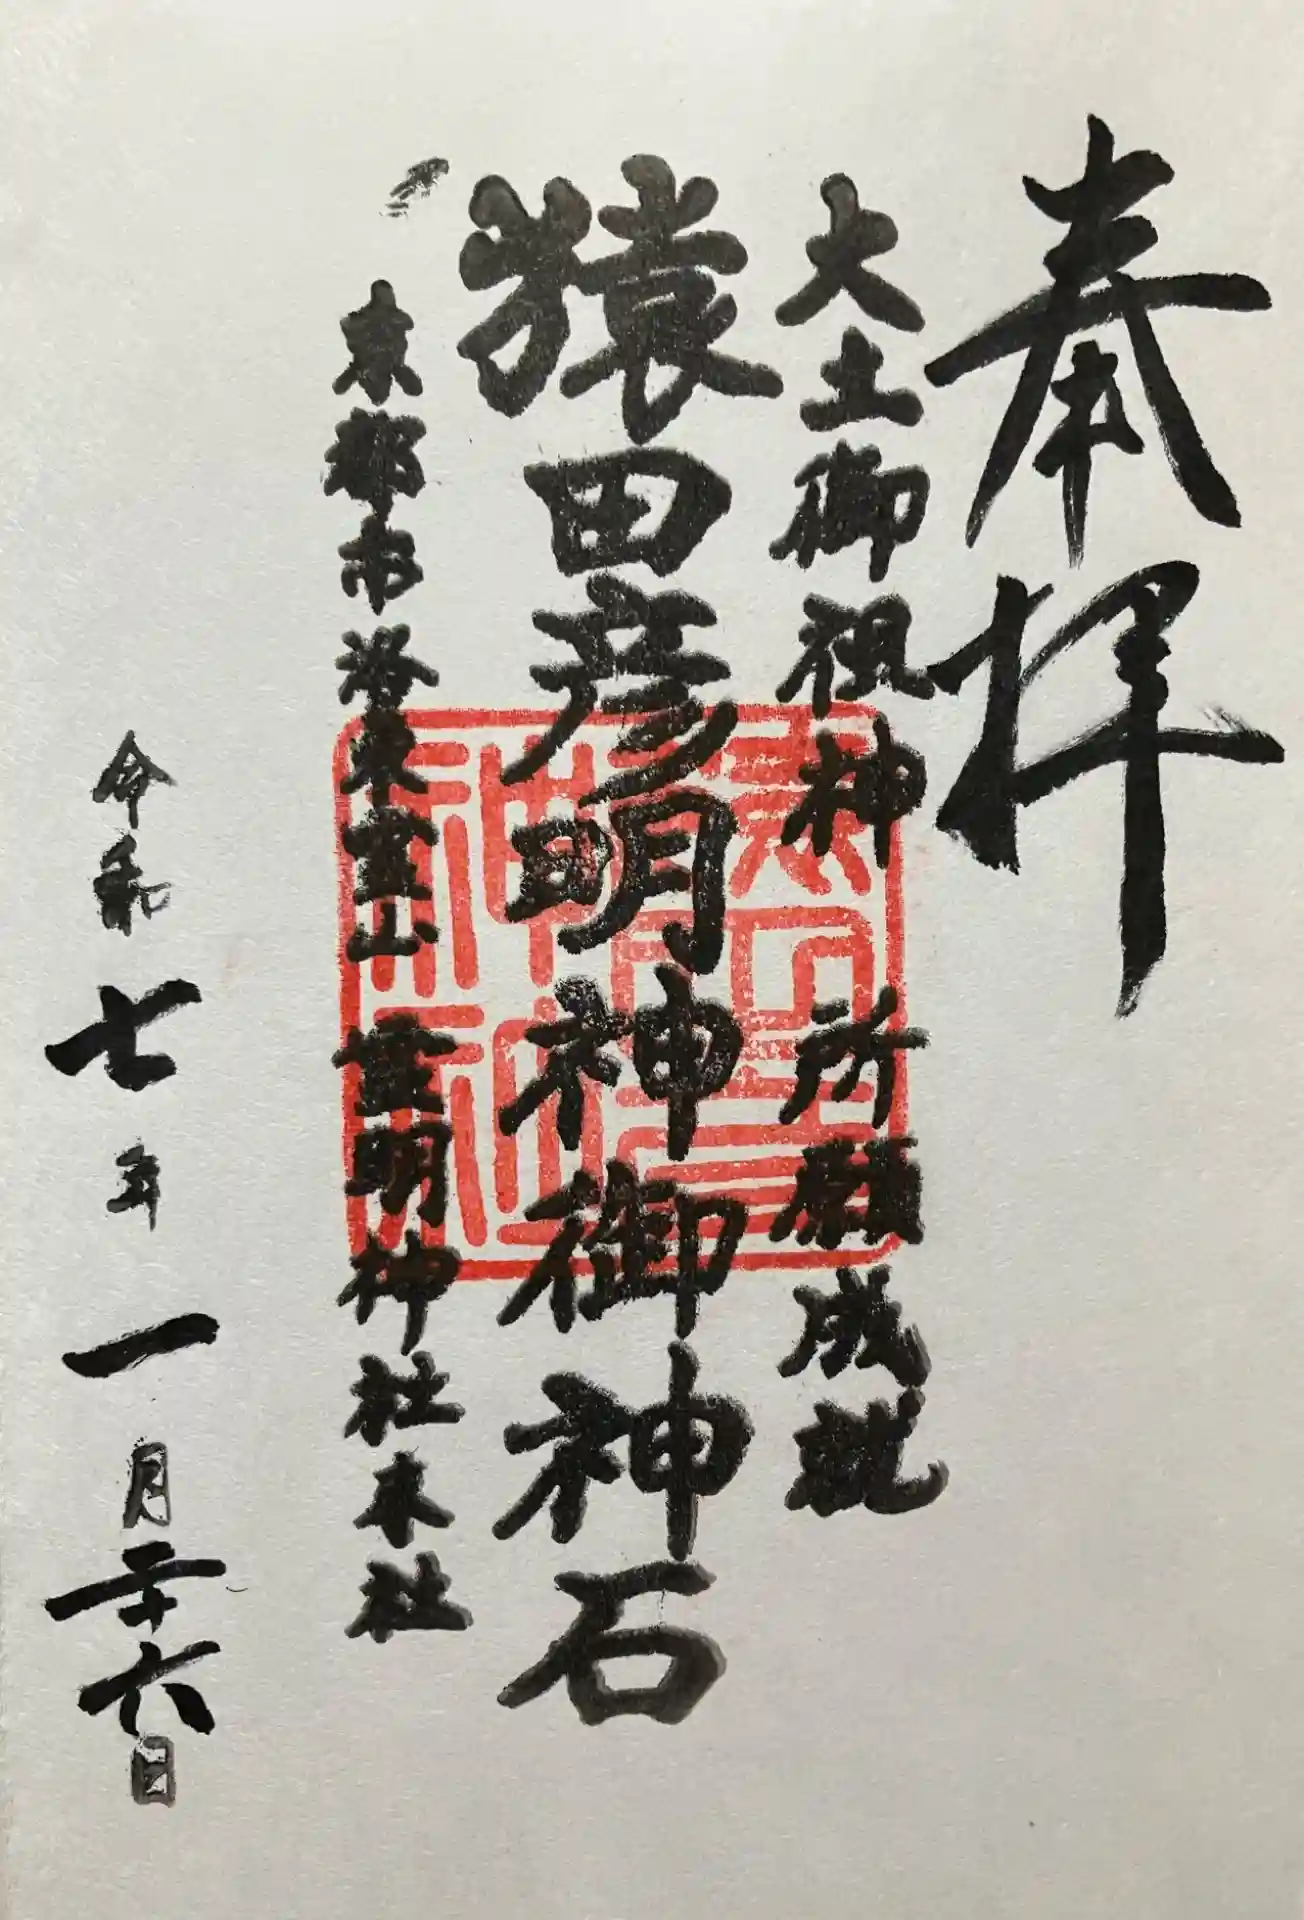 奉拝
大土御祖神 所願成就
猿田彦明神御神石
京都市洛東霊山 霊明神社本社
令和七年一月二十六日